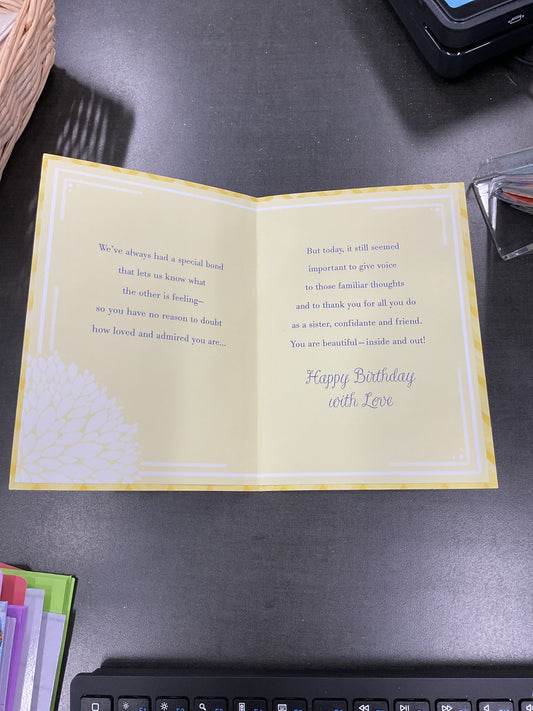 We've always had a special bond
that lets us know what
the other is feeling—
so you have no reason to doubt
how loved and admired you are...
But today, it still seemed
important to give voice
to those familiar thoughts
and to thank you for all you do
as a sister, confidante and friend.
You are beautiful—inside and out!
Happy Birthday
with Love